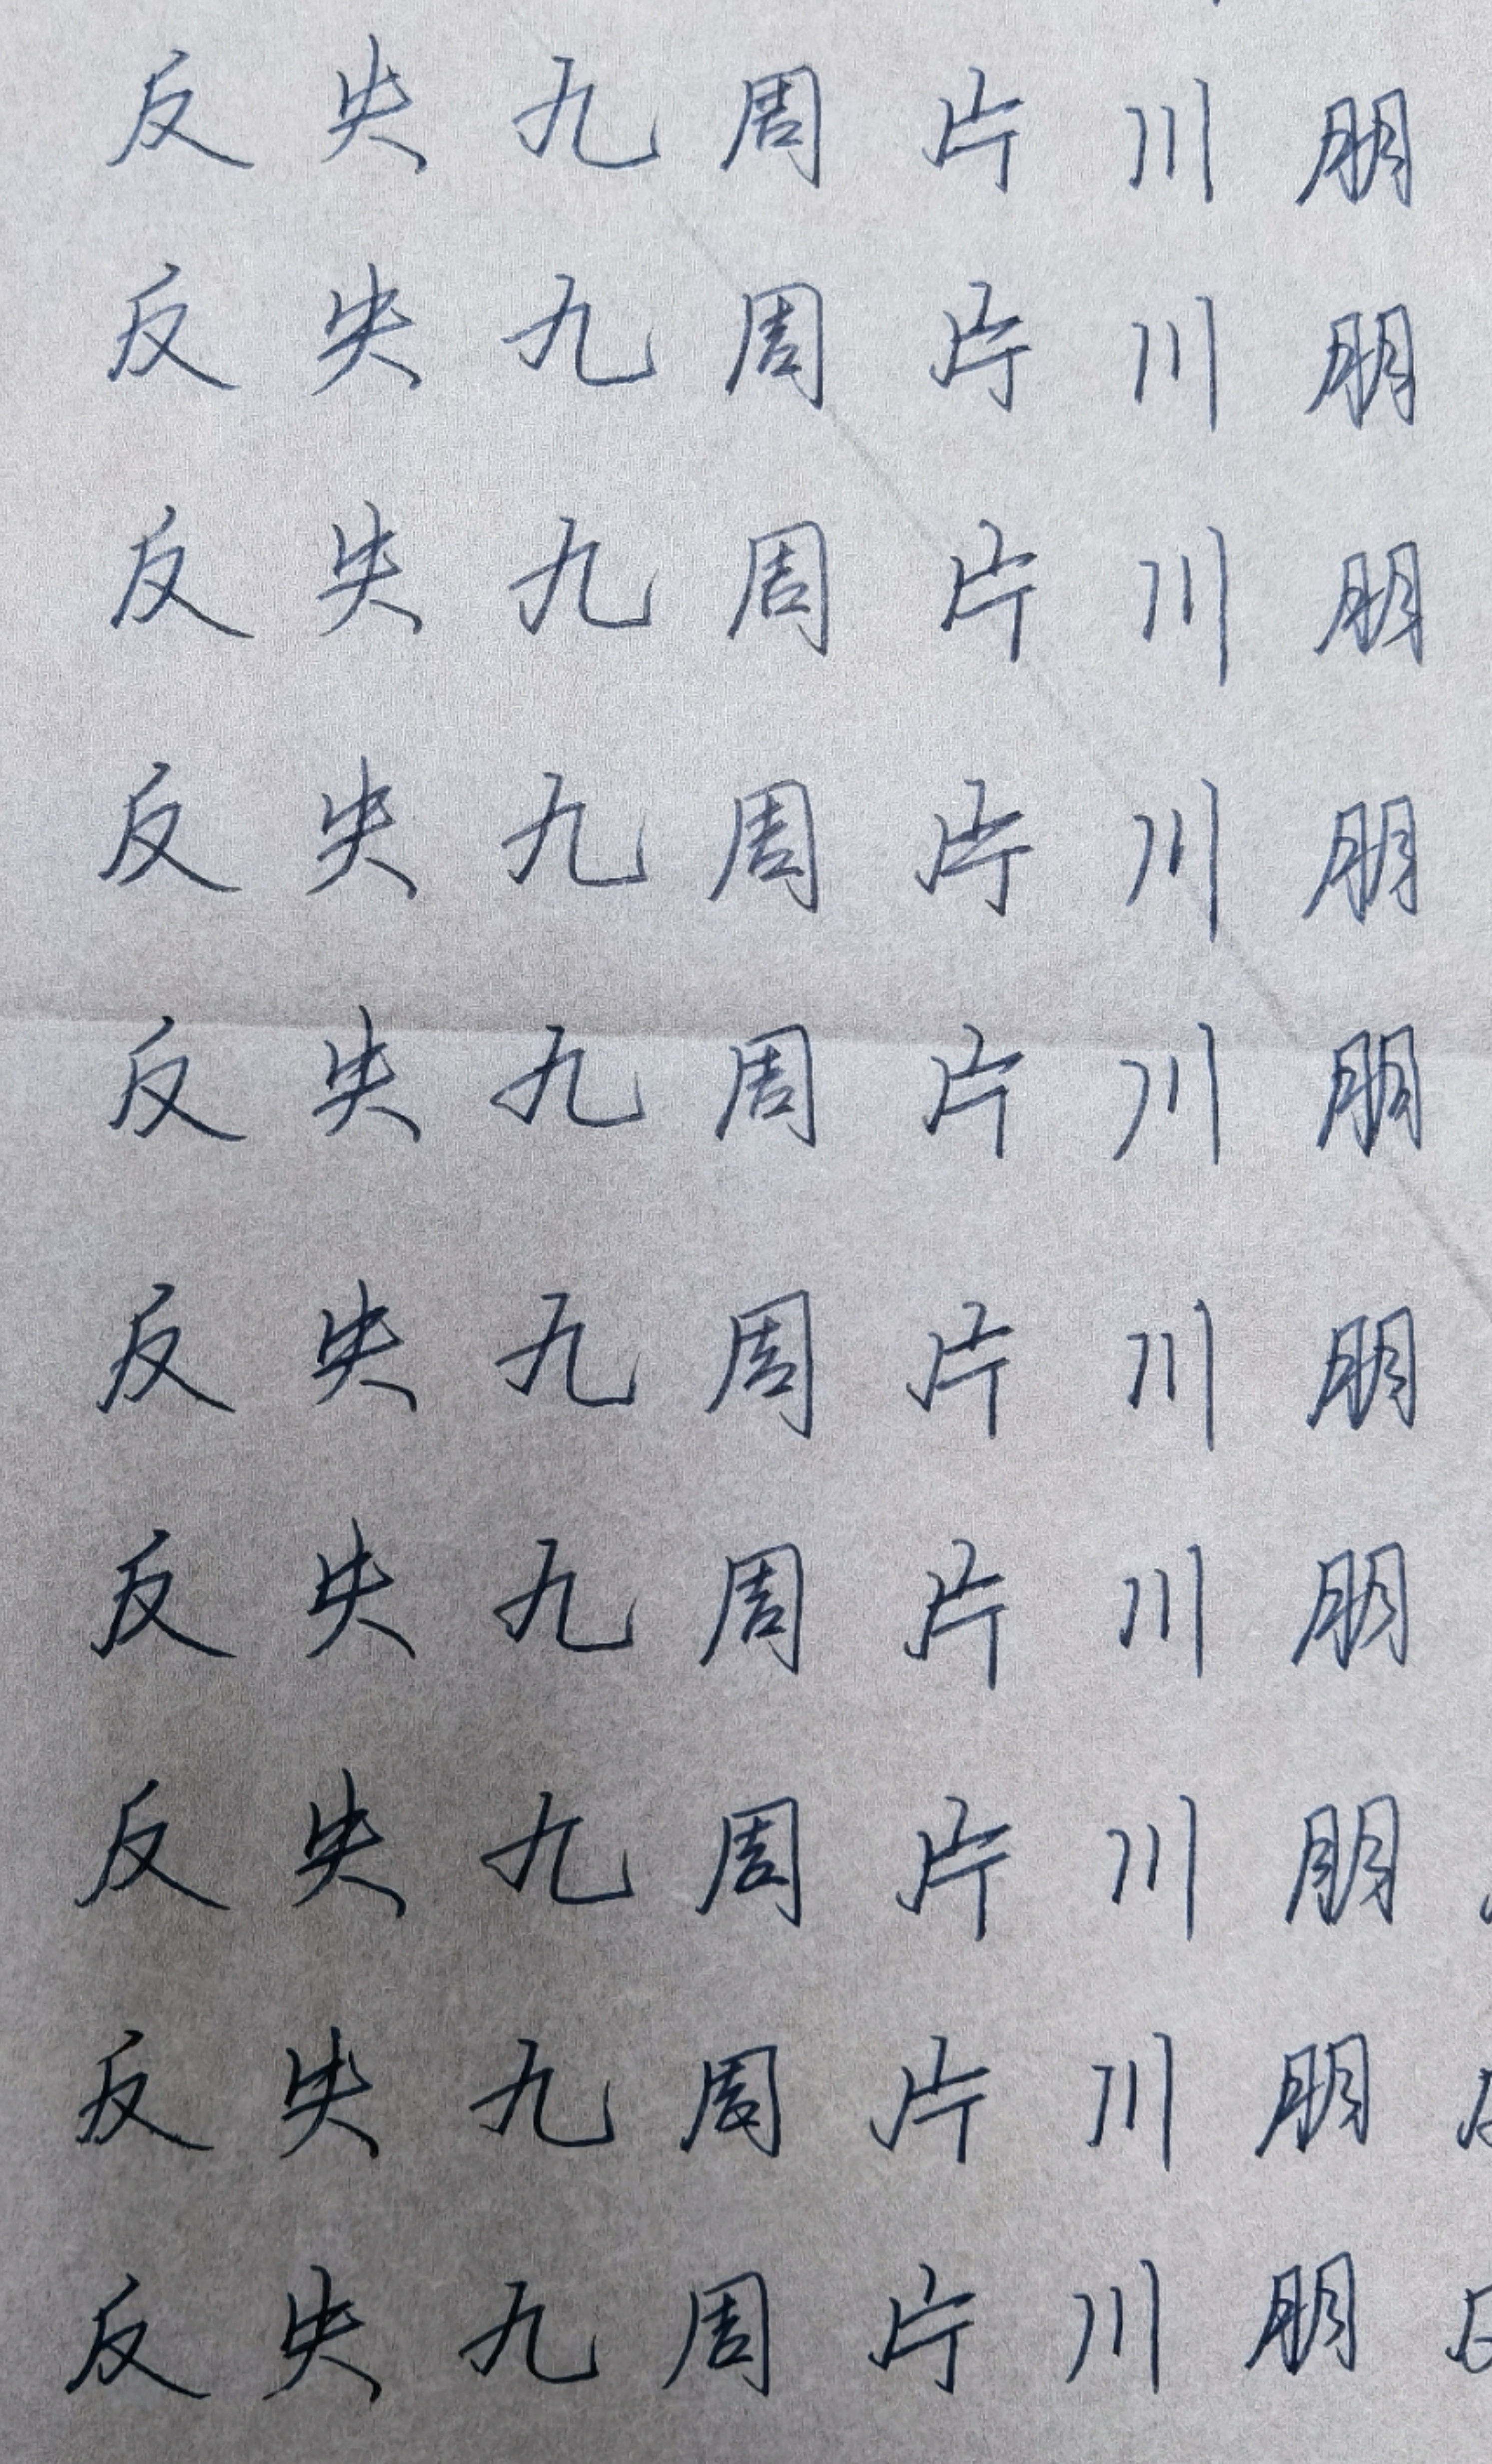 反 失 九 周 片 川 朋
反 失 九 周 片 川 朋
反 失 九 周 片 川 朋
反 失 九 周 片 川 朋
反 失 九 周 片 川 朋
反 失 九 周 片 川 朋
反 失 九 周 片 川 朋
反 失 九 周 片 川 朋
反 失 九 周 片 川 朋
反 失 九 周 片 川 朋